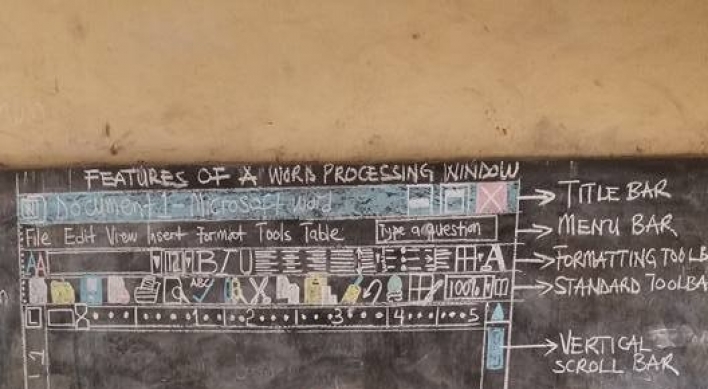 FEATURES OF A WORD PROCESSING WINDOW
Document 1 - Microsoft Word
TITLE BAR
File Edit View Insert Format Tools Table
Type a question
MENU BAR
AA
12
B I U
A
FORMATTING TOOLB
ABC
100%
STANDARD TOOLBA
1 2 3 4 5
VERTICAL
SCROLL BAR